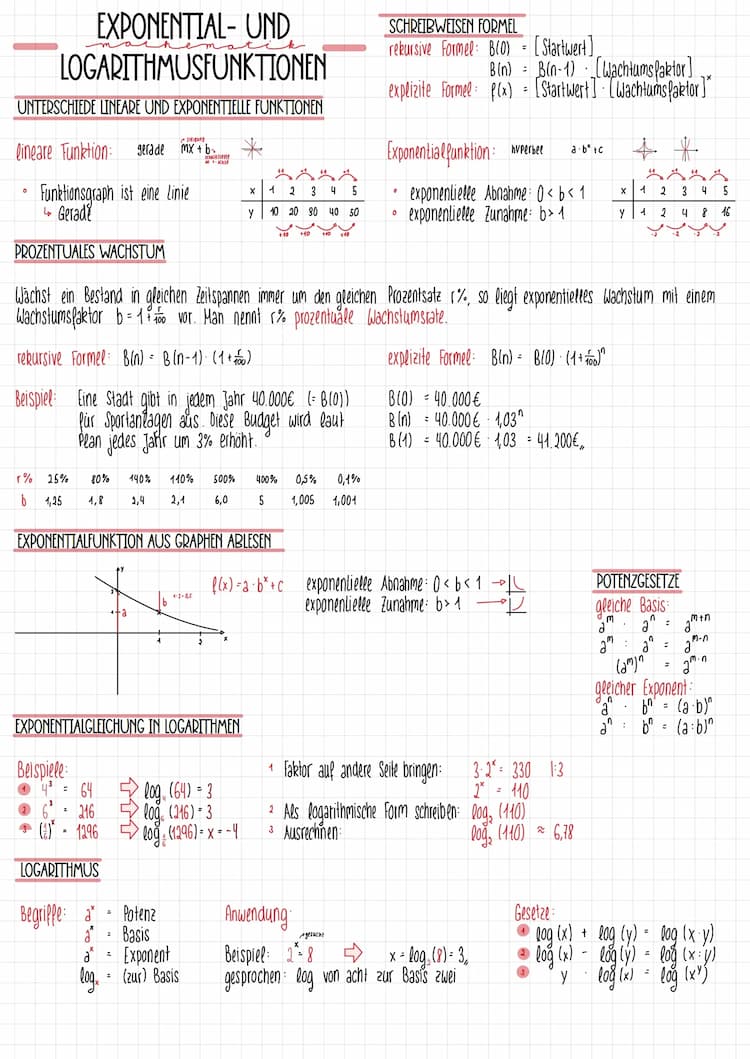 EXPONENTIAL- UND
mathematik
LOGARITHMUSFUNKTIONEN
SCHREIBWEISEN FORMEL
rekursive Formel: B(0) = [Startwert]
B(n) = B(n-1) · [Wachtumsfaktor]
explizite Formel: f(x) = [Startwert] · [Wachtumsfaktor]ˣ
UNTERSCHIEDE LINEARE UND EXPONENTIELLE FUNKTIONEN
lineare Funktion: gerade mx + b
Funktionsgraph ist eine Linie
↳ Gerade
x 1 2 3 4 5
y 10 20 30 40 50
+10 +10 +10 +10
Exponentialfunktion: hyperbel a·bˣ+c
exponentielle Abnahme: 0 < b < 1
exponentielle Zunahme: b > 1
x 1 2 3 4 5
y 1 2 4 8 16
·2 ·2 ·2 ·2
PROZENTUALES WACHSTUM
Wächst ein Bestand in gleichen Zeitspannen immer um den gleichen Prozentsatz r%, so liegt exponentielles Wachstum mit einem
Wachstumsfaktor b = 1 + r/100 vor. Man nennt r% prozentuale Wachstumsrate.
rekursive Formel: B(n) = B(n-1) · (1 + r/100)
explizite Formel: B(n) = B(0) · (1 + r/100)ⁿ
Beispiel: Eine Stadt gibt in jedem Jahr 40.000€ (= B(0))
für Sportanlagen aus. Diese Budget wird laut
Plan jedes Jahr um 3% erhöht.
B(0) = 40.000€
B(n) = 40.000€ · 1,03ⁿ
B(1) = 40.000€ · 1,03 = 41.200€
r% 25% 80% 140% 110% 500% 400% 0,5% 0,1%
b 1,25 1,8 2,4 2,1 6,0 5 1,005 1,001
EXPONENTIALFUNKTION AUS GRAPHEN ABLESEN
y
a
b
1
2
x
f(x) = a·bˣ+c
exponentielle Abnahme: 0 < b < 1 →
exponentielle Zunahme: b > 1 →
POTENZGESETZE
gleiche Basis:
aᵐ · aⁿ = aᵐ⁺ⁿ
aᵐ : aⁿ = aᵐ⁻ⁿ
(aᵐ)ⁿ = aᵐ·ⁿ
gleicher Exponent:
aⁿ · bⁿ = (a·b)ⁿ
aⁿ : bⁿ = (a:b)ⁿ
EXPONENTIALGLEICHUNG IN LOGARITHMEN
Beispiele:
1 4³ = 64 ⇨ log₄ (64) = 3
2 6³ = 216 ⇨ log₆ (216) = 3
3 (1/6)ˣ = 1296 ⇨ log (1296) = x = -4
1 Faktor auf andere Seite bringen: 3·2ˣ = 330 |:3
2ˣ = 110
2 Als logarithmische Form schreiben: log₂ (110)
3 Ausrechnen: log₂ (110) ≈ 6,78
LOGARITHMUS
Begriffe: aˣ = Potenz
aˣ = Basis
aˣ = Exponent
logₓ = (zur) Basis
Anwendung:
gesucht
Beispiel: 2ˣ = 8 ⇨ x = log₂ (8) = 3
gesprochen: log von acht zur Basis zwei
Gesetze:
1 log (x) + log (y) = log (x·y)
2 log (x) - log (y) = log (x:y)
3 y · log (x) = log (xʸ)